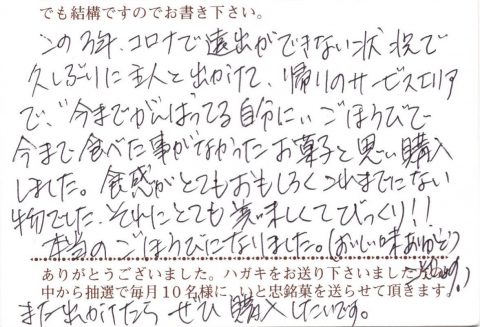 でも結構ですのでお書き下さい。
この3年、コロナで遠出ができない状況で
久しぶりに主人と出かけて、帰りのサービスエリア
で、"今までがんばってる自分に,,ごほうびで
今まで食べた事がなかったお菓子と思い購入
しました。食感がとてもおもしろくこれまでにない
物でした。それにとても美味しくてびっくり!!
本当のごほうびになりました。(おいしい味ありがとう
ございます。)
ありがとうございました。ハガキをお送り下さいました
中から抽選で毎月10名様に、いと忠銘菓を送らせて頂きます。
また出かけたら ぜひ購入したいです。